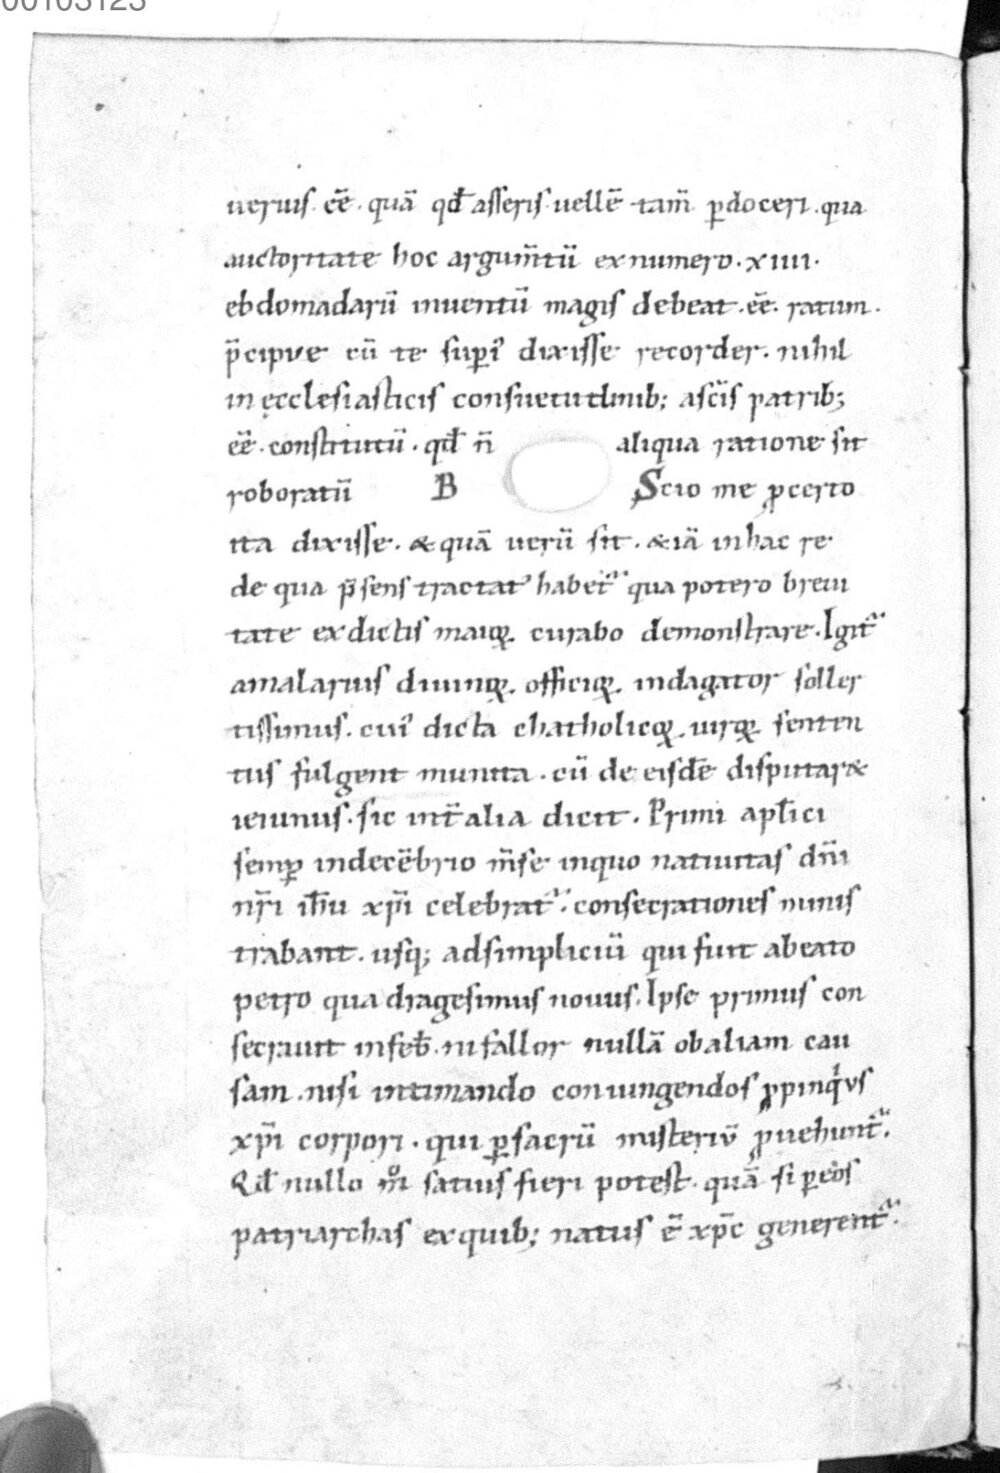 00103123
uerius. eē. quā qđ asseris. uellē tam̄ ꝑdoceri. qua
auctoritate hoc argum̄tū ex numero. xiiii.
ebdomadarū inuentū magis debeat. eē. ratum.
p̄cipue cū te supi᷒ dixisse recorder. nihil
in ęcclesiasticis consuetudinib; a sc̄is patrib;
eē. constitutū. qđ n̄ aliqua ratione sit
roboratū B Scio me ꝓcerto
ita dixisse. & quā uerū sit. & iā in hac re
de qua p̄sens tractat᷒ habet᷑ qua potero breui
tate ex dictis maioꝝ. curabo demonstrare. Igit᷑
amalarius diuinoꝝ. officioꝝ. indagator soller
tissimus. cui᷒ dicta chatholicoꝝ. uiroꝝ sententi
tus fulgent munita. cū de eisdē disputar&
ieiunus. sic int̄ alia dicit. Primi apl̄ici
semꝑ in decēbrio m̄se in quo natiuitas dn̄i
nr̄i ih̄u xp̄i celebrat᷑. consecrationes minis
trabant. usq; ad simpliciū qui fuit a beato
petro quadragesimus nouus. Ipse primus con
secrauit in feb̄. ni fallor nullā ob aliam cau
sam. nisi intimando coniungendos ꝓpinqͥus
xp̄i corpori. qui ꝑ sacrū misteriū ꝓuehunt᷑.
Qđ nullo mͦ satius fieri potest. quā si ꝑ eos
patriarchas ex quib; natus ē xp̄c generent᷑.